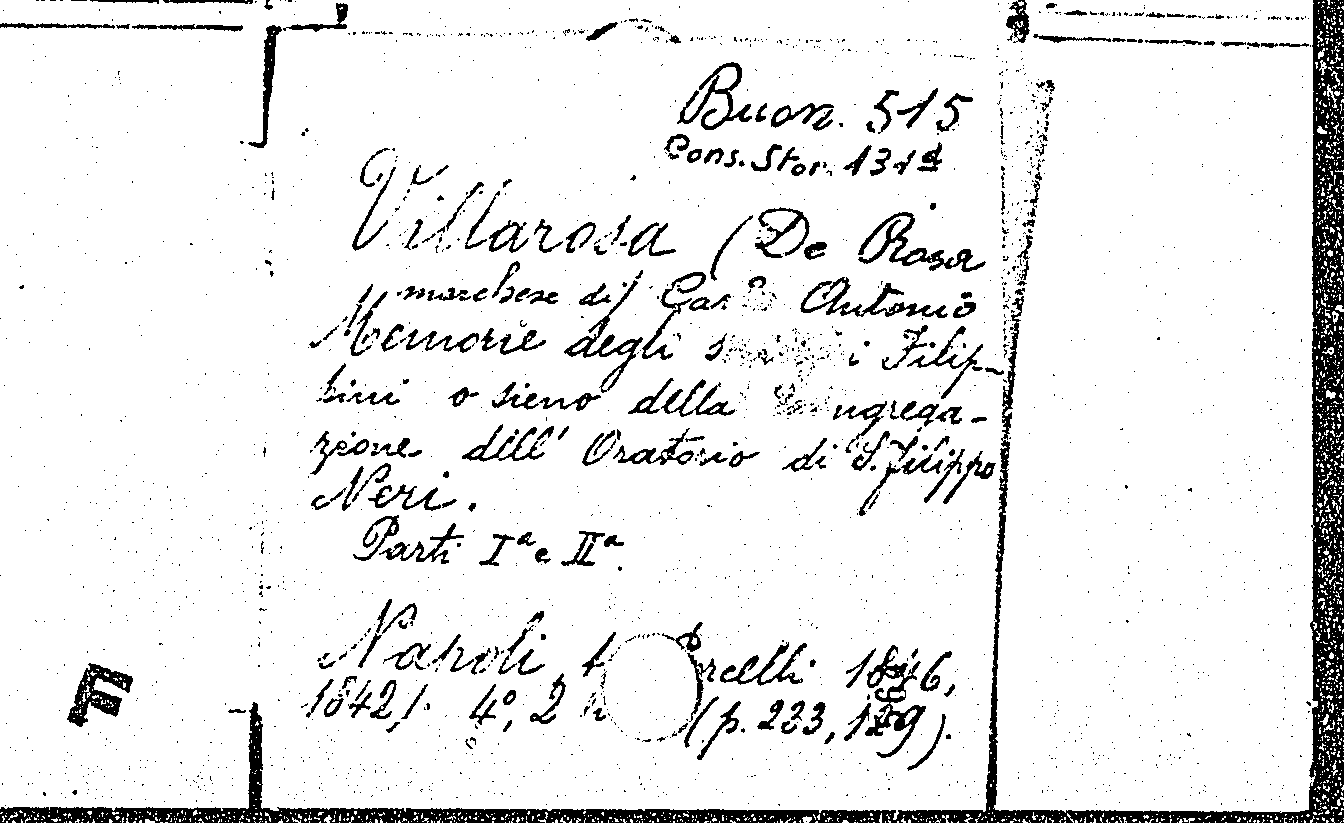 Buon. 515
Cons. Stor. 131d
Villarosa (De Rosa
marchese di) Carlo Antonio
Memorie degli i Filip-
pini o sieno della Congrega-
zione dell' Oratorio di S. Filippo
Neri.
Parti Iª e IIª.
Napoli, 1846,
1842). 4°, 2 (p. 223, 169).
F